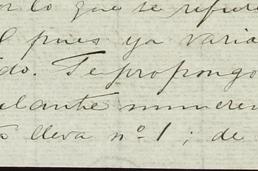 or lo que se refie
l pues ya varia
ido. Te propongo
elante numerem
a lleva nº 1; de